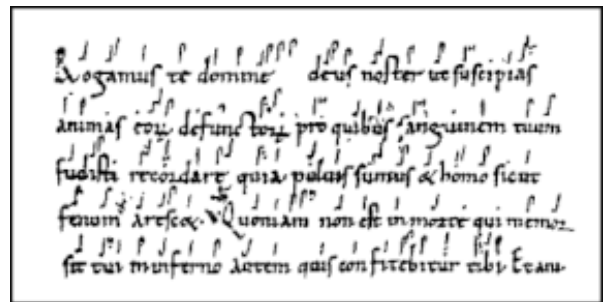 Rogamus te domine deus noster ut suscipias
animas eoꝝ defunctoꝝ pro quibus sanguinem tuum
fudisti recordare quia puluis sumus & homo sicut
fenum Quoniam non est in morte qui memor
sit tui in inferno autem quis confitebitur tibi Et ani